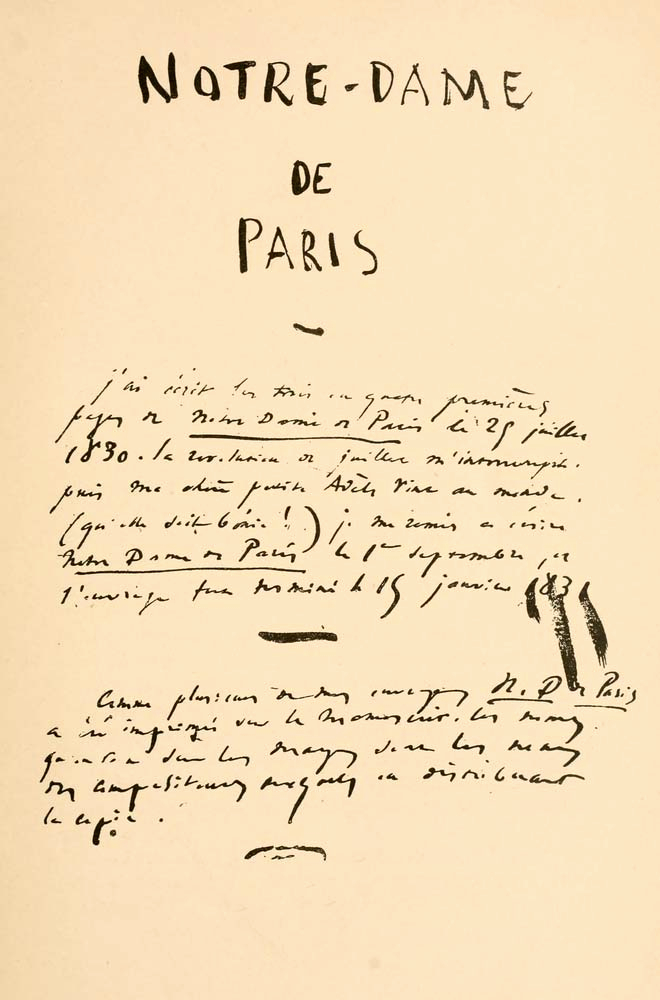 NOTRE-DAME
DE
PARIS
j'ai écrit les trois ou quatre premières
pages de Notre Dame de Paris le 25 juillet
1830. la révolution de juillet m'interrompit.
puis ma chère petite Adèle vint au monde.
(qu'elle soit bénie!) je me remis à écrire
Notre Dame de Paris le 1er septembre, et
l'ouvrage fut terminé le 15 janvier 1831
Comme plusieurs de mes ouvrages N. D de Paris
a été imprimé sur le manuscrit. les noms
qu'on a dans les marges sont les noms
des compositeurs auxquels on distribuait
la copie.